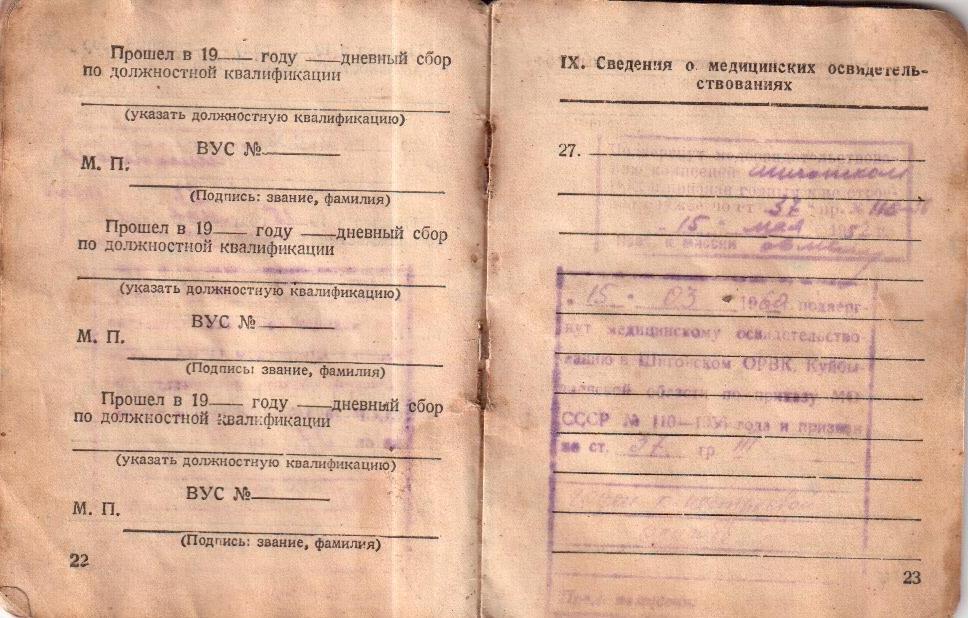 Прошел в 19 году дневный сбор
по должностной квалификации
(указать должностную квалификацию)
ВУС №
М. П.
(Подпись: звание, фамилия)
Прошел в 19 году дневный сбор
по должностной квалификации
(указать должностную квалификацию)
ВУС №
М. П.
(Подпись: звание, фамилия)
Прошел в 19 году дневный сбор
по должностной квалификации
(указать должностную квалификацию)
ВУС №
М. П.
(Подпись: звание, фамилия)
22
IX. Сведения о медицинских освидетель-
ствованиях
27.
комиссией
по ст 37 пр. №
15 мая
комиссии
15 03 1960 подверг-
нут медицинскому освидетельство
ванию в Шигонском ОРВК, Куйбы-
шевской области по приказу МО
СССР № 110—1956 года и признан
по ст. 37 гр III
23